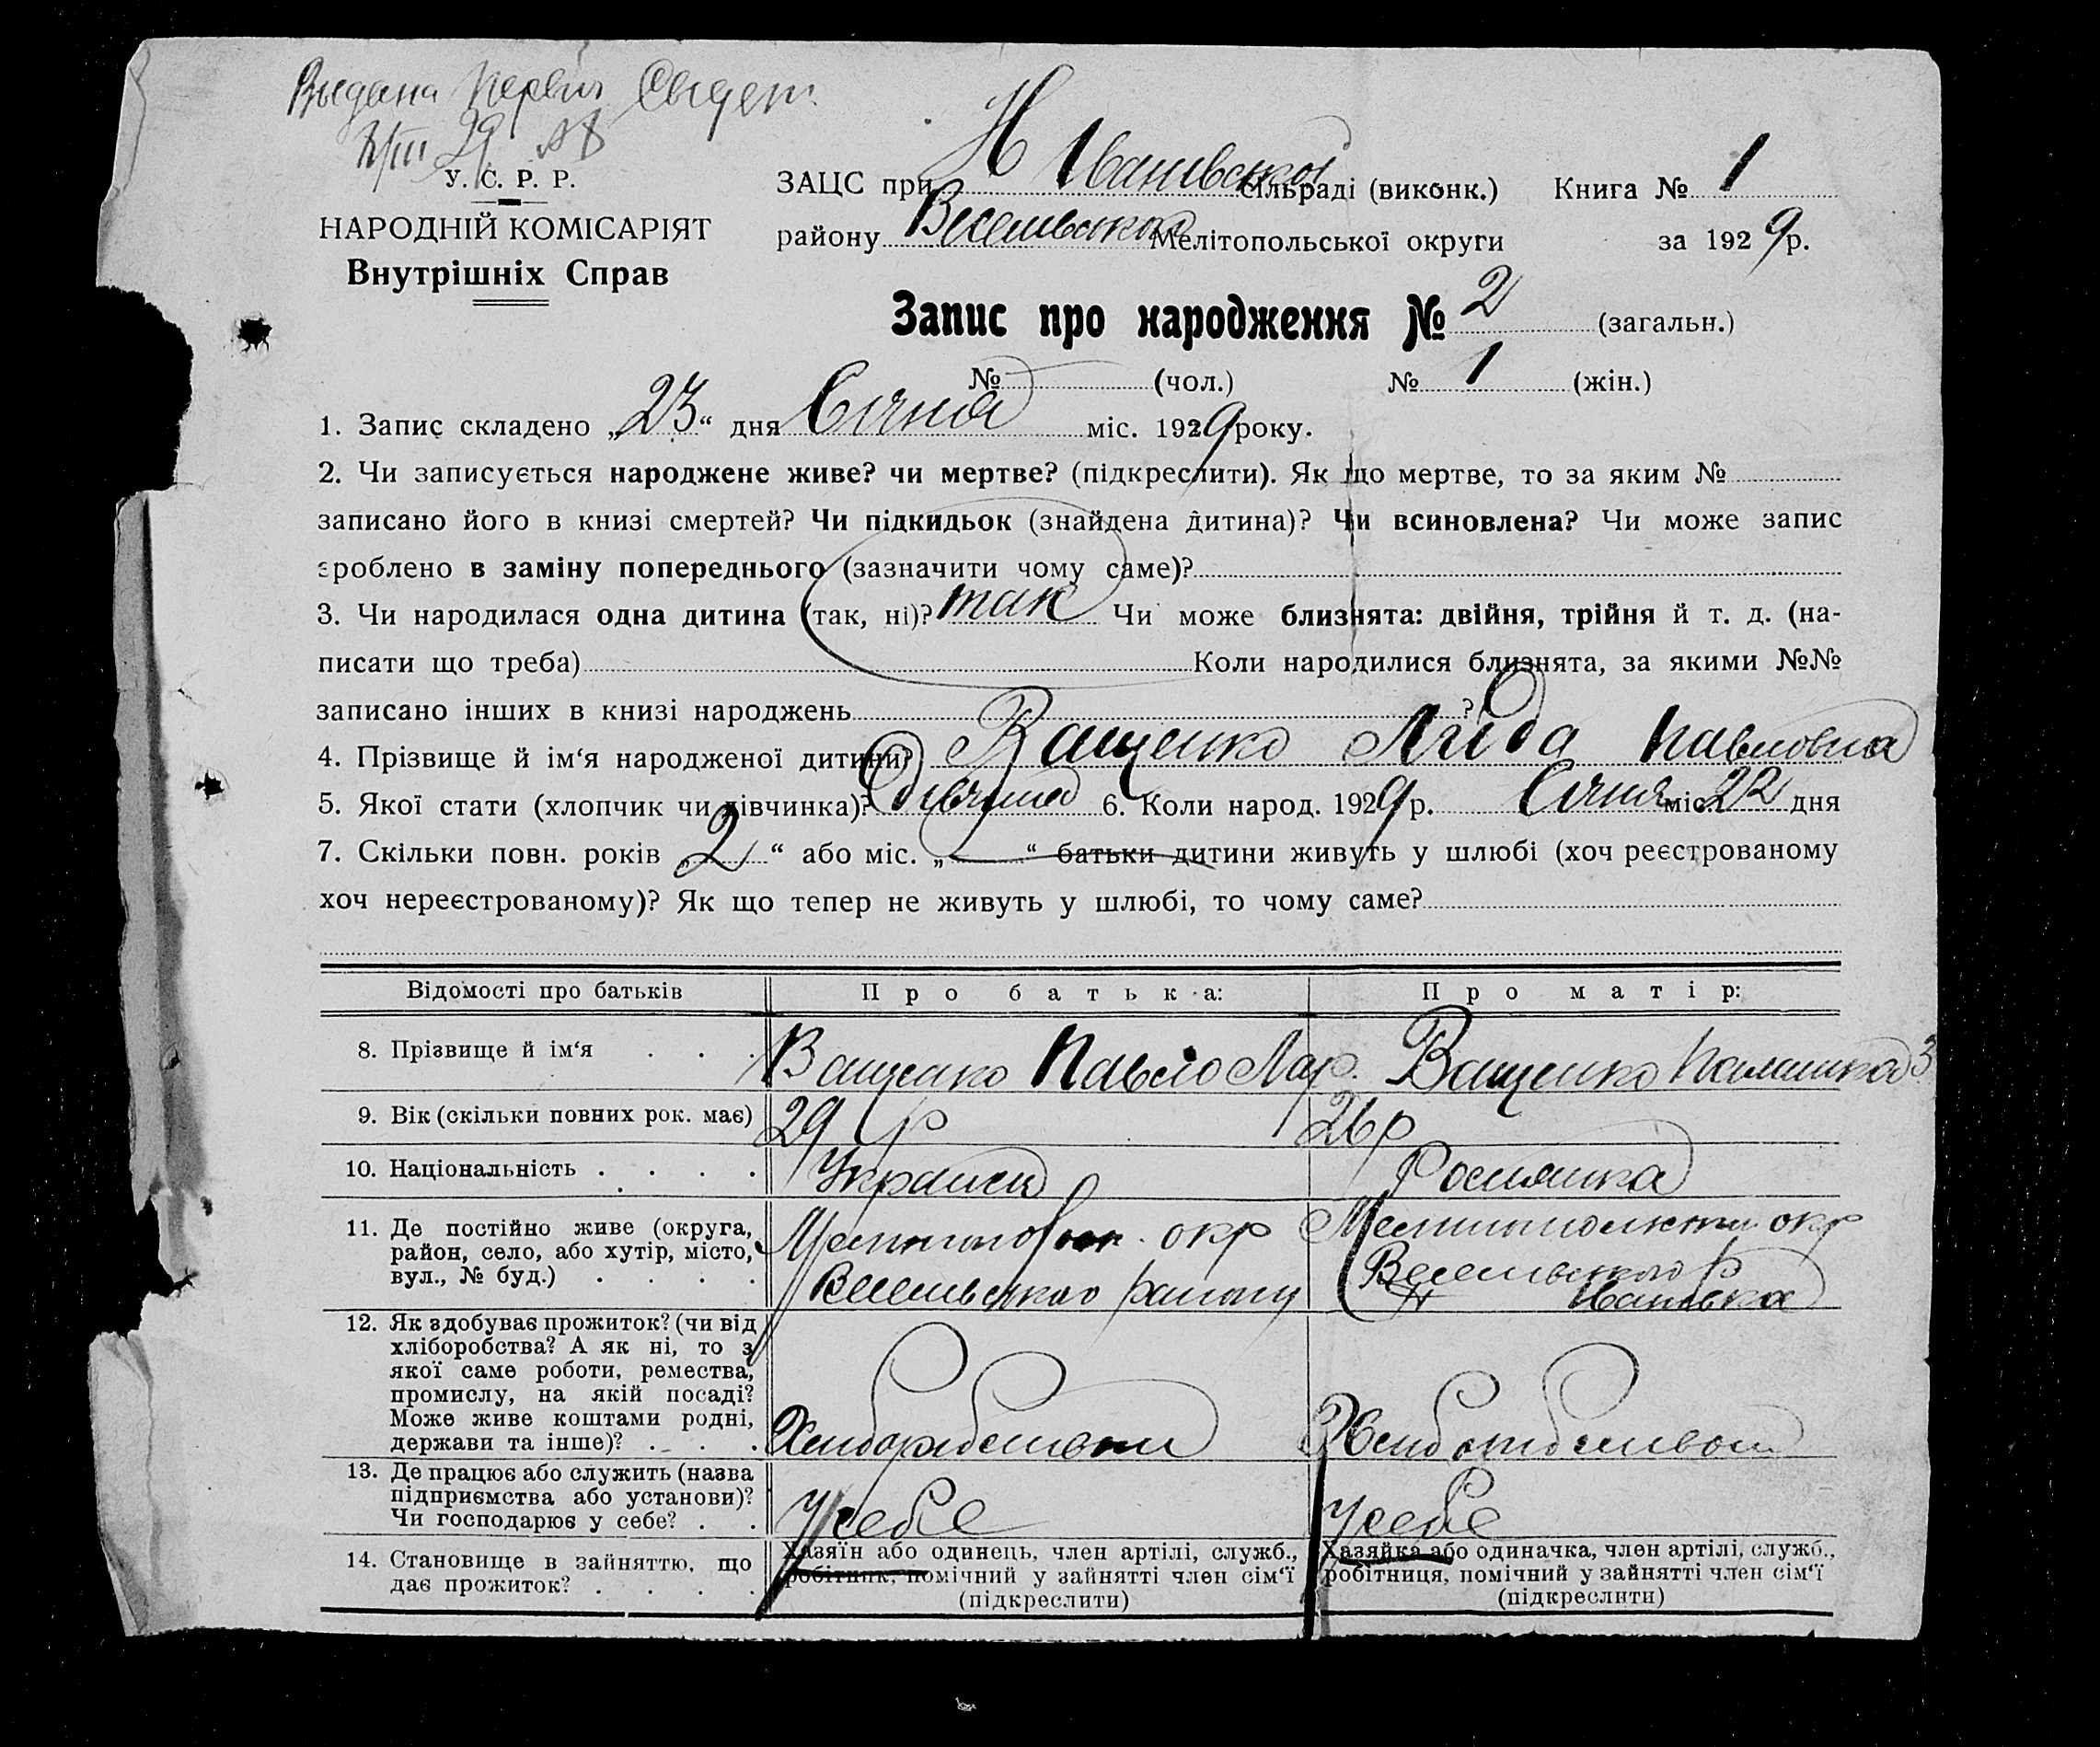 Выдана первич Свидет.
29
У. С. Р. Р.
НАРОДНІЙ КОМІСАРІЯТ
Внутрішніх Справ
ЗАЦС при Н Іванівської сільраді (виконк.) Книга № 1
району Веселівського Мелітопольської округи за 1929 р.
Запис про народження № 2 (загальн.)
№ (чол.) № 1 (жін.)
1. Запис складено „23“ дня Січня міс. 1929 року.
2. Чи записується народжене живе? чи мертве? (підкреслити). Як що мертве, то за яким №
записано його в книзі смертей? Чи підкидьок (знайдена дитина)? Чи всиновлена? Чи може запис
зроблено в заміну попереднього (зазначити чому саме)?
3. Чи народилася одна дитина (так, ні)? так Чи може близнята: двійня, трійня й т. д. (на-
писати що треба) Коли народилися близнята, за якими №№
записано інших в книзі народжень ?
4. Прізвище й ім‘я народженої дитини? Ващенко Ліда Павловна
5. Якої стати (хлопчик чи дівчинка)? дівчина 6. Коли народ. 1929 р. Січня міс. 22 дня
7. Скільки повн. років „2“ або міс. „ “ батьки дитини живуть у шлюбі (хоч реєстрованому
хоч нереєстрованому)? Як що тепер не живуть у шлюбі, то чому саме?
Відомості про батьків
Про батька:
Про матір:
8. Прізвище й ім‘я . . .
Ващенко Павло Лар.
Ващенко Палашка З
9. Вік (скільки повних рок. має)
29 р
26 р
10. Національність . . . .
Українець
Росиянка
11. Де постійно живе (округа,
район, село, або хутір, місто,
вул., № буд.) . . . .
окр
Веселівського району
окр
Веселівського р
Н Іванівка
12. Як здобуває прожиток? (чи від
хліборобства? А як ні, то з
якої саме роботи, ремества,
промислу, на якій посаді?
Може живе коштами родні,
держави та інше)? . . .
Хліборобством
Хліборобством
13. Де працює або служить (назва
підприємства або установи)?
Чи господарює у себе? . .
У себе
У себе
14. Становище в зайняттю, що
дає прожиток? . . . .
Хазяїн або одинець, член артілі, служб.,
робітник, помічний у зайнятті член сім‘ї
(підкреслити)
Хазяйка або одиначка, член артілі, служб.,
робітниця, помічний у зайнятті член сім‘ї
(підкреслити)